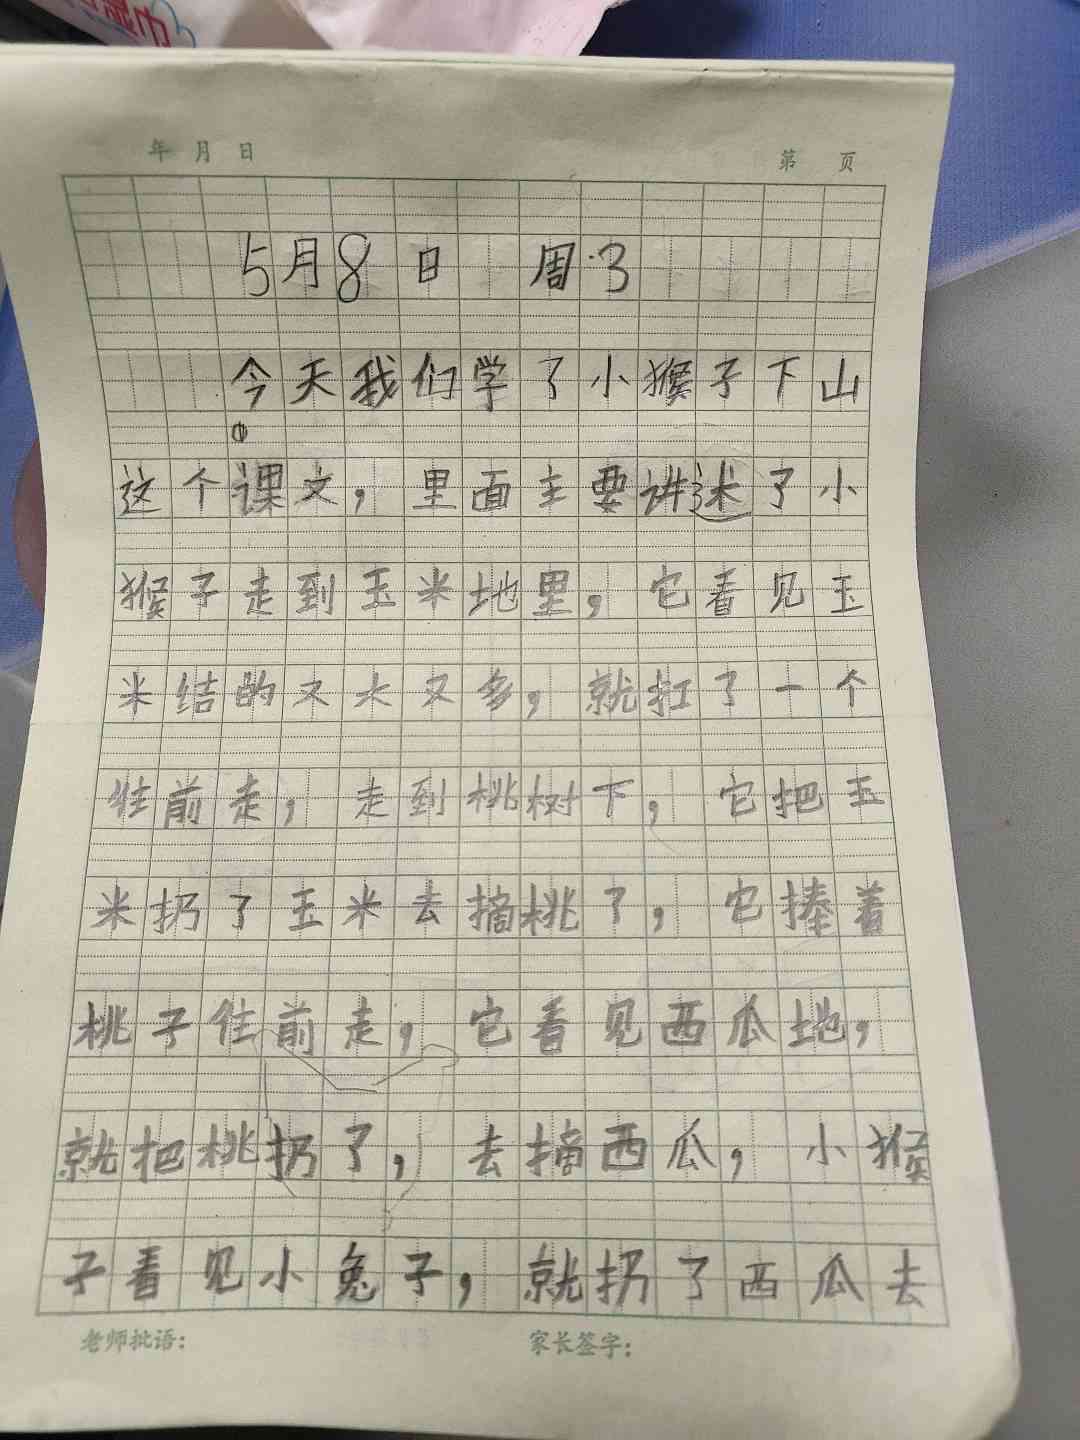 湿巾
年 月 日 第 页
5月8日 周3
今天我们学了小猴子下山
这个课文，里面主要讲述了小
猴子走到玉米地里，它看见玉
米结的又大又多，就扛了一个
往前走，走到桃树下，它把玉
米扔了玉米去摘桃了，它捧着
桃子往前走，它看见西瓜地，
就把桃扔了，去摘西瓜，小猴
子看见小兔子，就扔了西瓜去
老师批语： 家长签字：